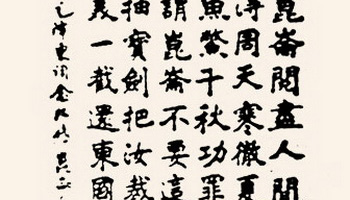 崑崙閱盡人間
得周天寒徹夏
魚鱉千秋功罪
謂崑崙不要這
抽寶劍把汝裁
美一截還東國
毛澤東詞